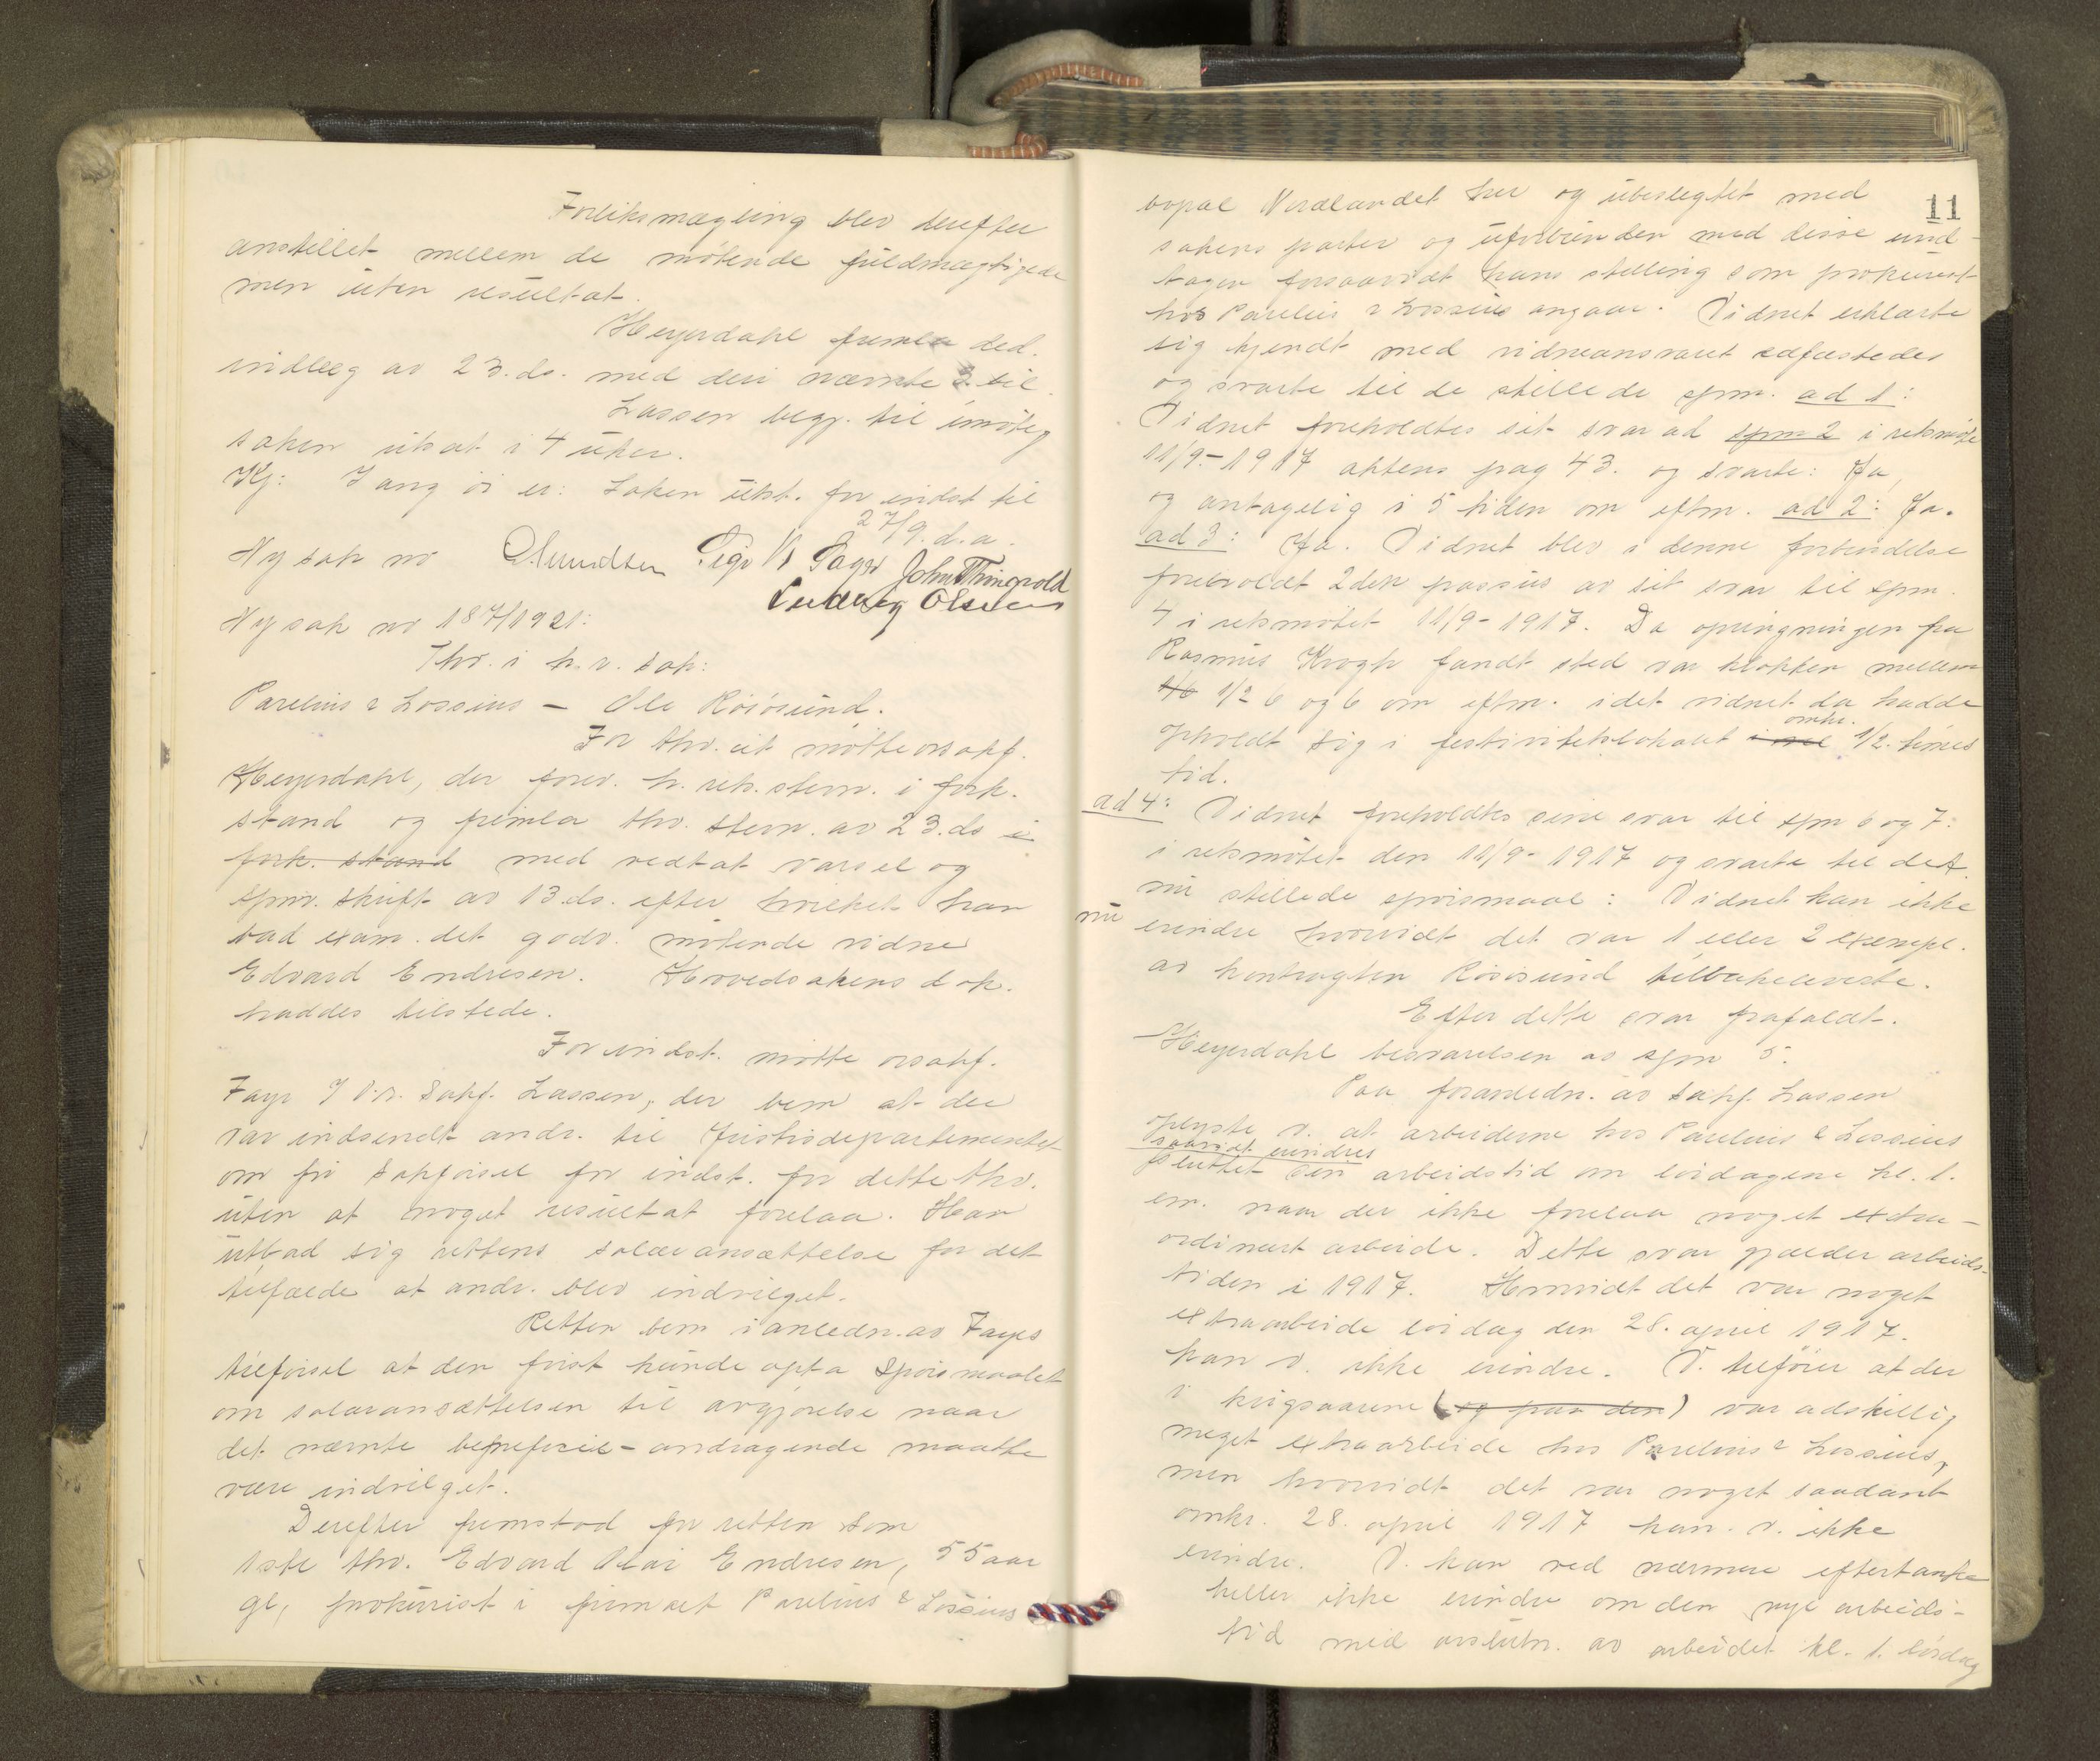 Forliksmægling blev derefter
anstillet mellem de møtende fuldmægtigede
men uten resultat.
Heyerdahl fremla ded.
indlæg av 23. ds. med deri nævnte 2 bil.
Lassen begj. til imøteg
saken utsat i 4 uker.
Kj: I ang øi er: Saken utst. for indst til
27/9. d. a.
Ny sak no
John Thingvold
Ludvig Olsen
Ny sak no 187/1921:
Thv. i h. r. sak:
Parelius & Lossius – Ole Röiösund.
For thv. cit møtte orsakf.
Heyerdahl, der forev. h. rets. stevn. i fork.
stand og fremla thv. stevn. av 23. ds i
fork. stand med vedtat varsel og
spm. skrift av 13. ds. efter hvilket han
bad exam. det godv. møtende vidne
Edvard Endresen. Hovedsakens dok.
haddes tilstede.
For indst. møtte orsakf.
Faye f. o.r. sakf. Lassen, der bem at der
var indsendt andr. til Justisdepartementet
om fri sakførsel for indst. for dette thv.
uten at noget resultat forelaa. Han
utbad sig rettens salæransættelse for det
tilfælde at andr. blev indvilget.
Retten bem i anledn. av Fayes
tilførsel at den først kunde opta spørsmaalet
om salæransættelsen til avgjørelse naar
det nævnte beneficie-andragende maatte
være indvilget.
Derefter fremstod for retten som
1ste thv. Edvard Olai Endresen, 55 aar
gl, prokurist i firmaet Parelius & Lossius
11
bopæl Nordlandet her og ubeslegtet med
sakens parter og uforbunden med disse und-
tagen forsaavidt hans stilling som prokurist
hos Parelius & Lossius angaar. Vidnet erklærte
sig kjendt med vidneansvaret edfæstedes
og svarte til de stillede spm. ad 1:
Vidnet foreholdtes sit svar ad spm 2 i retsmøte
11/9.-1917 aktens pag 43. og svarte: Ja,
og antagelig i 5 tiden om eftm. ad 2: Ja.
ad 3: Ja. Vidnet blev i denne forbindelse
foreholdt 2den passus av sit svar til spm.
4 i retsmøtet 11/9-1917. Da opringningen fra
Rasmus Krogh fandt sted var klokken mellem
1/6 1/2 6 og 6 om eftm. idet vidnet da hadde
omkr.
opholdt sig i festivitetslokalet 1/2. times
tid.
ad 4: Vidnet foreholdtes sine svar til spm 6 og 7:
i retsmøtet den 11/9-1917 og svarte til det
nu stillede spørsmaal: Vidnet kan ikke
nu erindre hvorvidt det var 1 eller 2 exempl.
av kontrakten Röisund tilbakeleverte.
Efter dette svar frafaldt.
Heyerdahl besvarelsen av spm 5.
Paa foranledn. av sakf. Lassen
oplyste v. at arbeiderne hos Parelius & Lossius
saavidt erindres
sluttet sin arbeidstid om lørdagene kl. 1.
em. naar der ikke forelaa noget extra-
ordinært arbeide. Dette svar gjælder arbeids-
tiden i 1917. Hvorvidt det var noget
extraarbeide lørdag den 28. april 1917.
kan v. ikke erindre. V. tilføier at der
i krigsaarene (og paa den) var adskillig
meget extraarbeide hos Parelius & Lossius,
men hvorvidt det var noget saadant
omkr. 28. april 1917 kan. v. ikke
erindre. V. kan ved nærmere eftertanke
heller ikke erindre om den nye arbeids-
tid med avslutn. av arbeidet kl. 1. lørdag